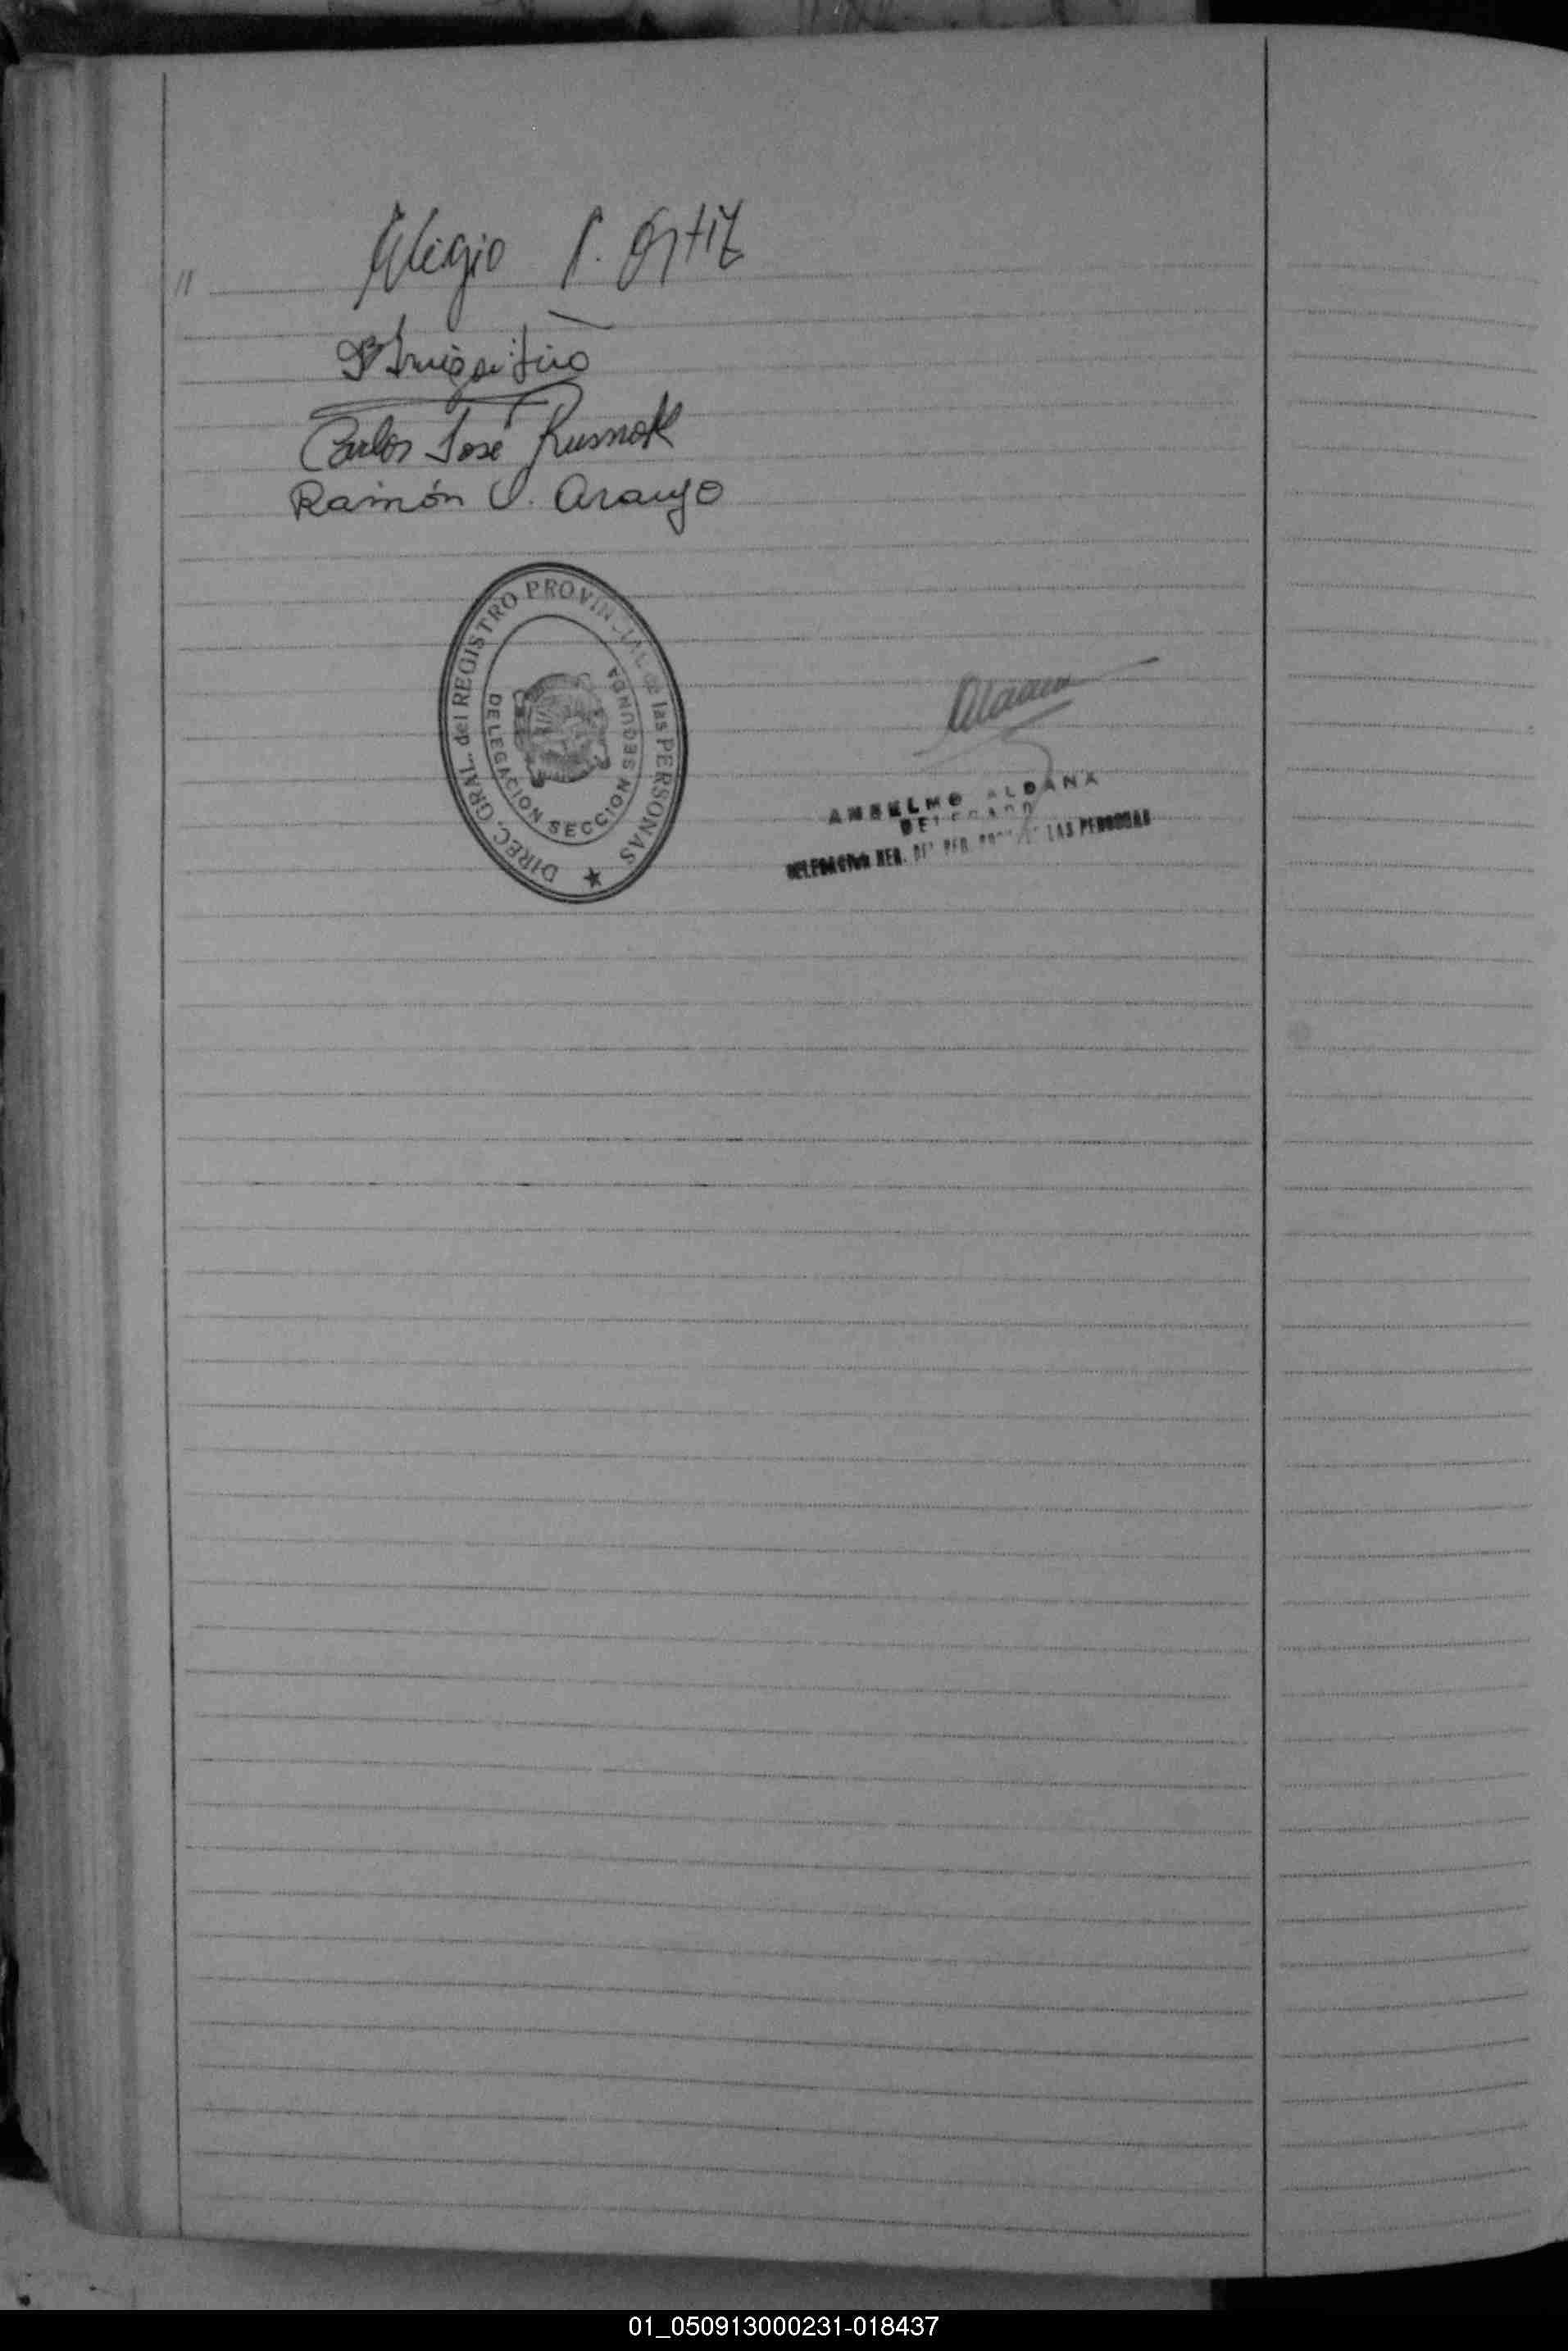 "
Eligio P. Ortiz
Carlos José Rusnak
Ramón V. Araujo
DIREC. GRAL. del REGISTRO PROVINCIAL de las PERSONAS
DELEGACION SECCION SEGUNDA
ANSELMO ALDANA
DELEGADO
LAS PERSONAS
01_050913000231-018437